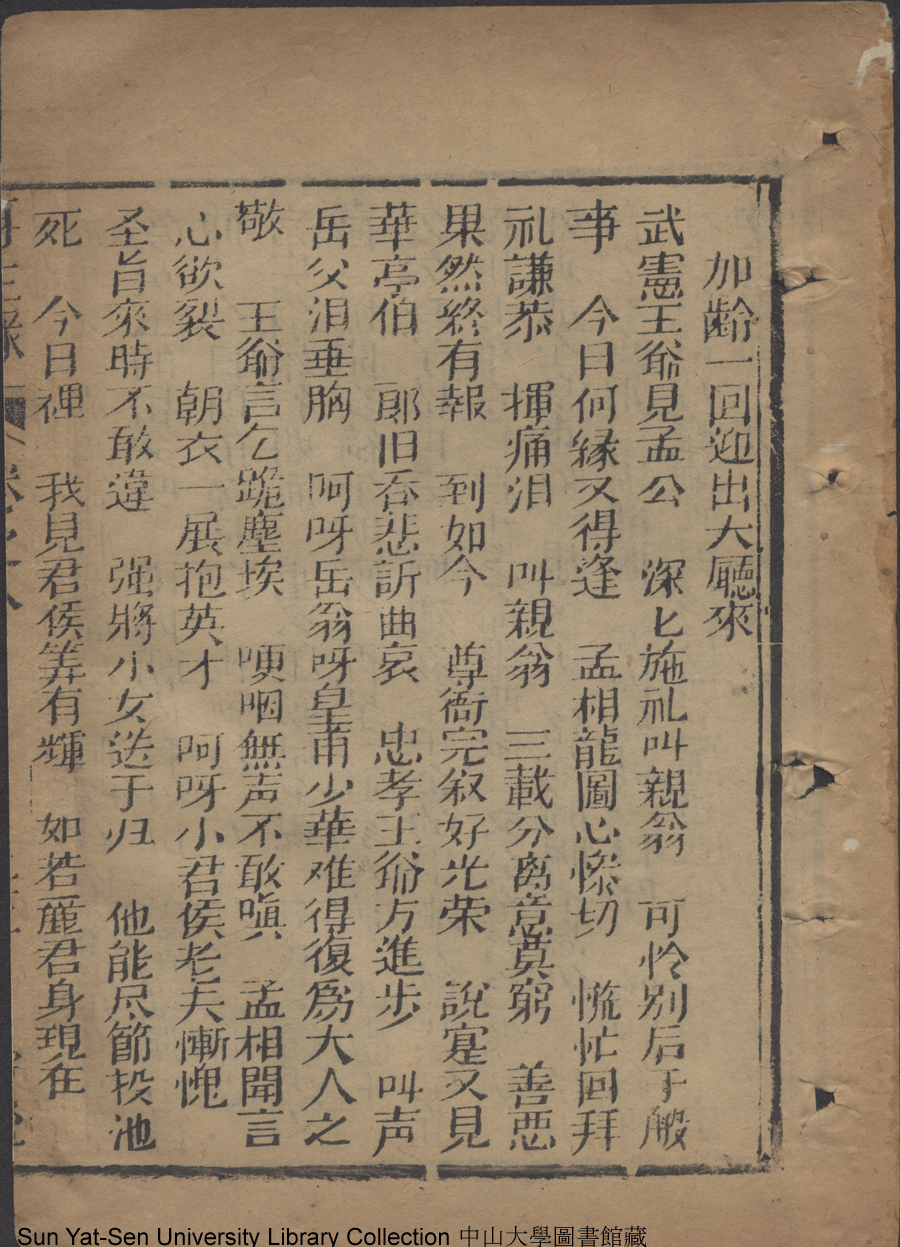 加齡一回迎出大廳來
武憲王爺見孟公　深匕施礼叫親翁　可怜別后千般
事　今日何緣又得逢　孟相龍圖心慘切　慌忙回拜
礼謙恭　揮痛泪　叫親翁　三載分离意莫窮　善惡
果然終有報　到如今　尊衙完叙好光荣　說寔又見
華亭伯　郎旧吞悲訴曲哀　忠孝王爺方進步　叫声
岳父泪垂胸　呵呀岳翁呀皇甫少華难得復爲大人之
敬　王爺言乞跪塵埃　哽咽無声不敢嗔　孟相聞言
心欲裂　朝衣一展抱英才　呵呀小君侯老夫慚愧
圣旨來時不敢違　强將小女送于归　他能尽節投池
死　今日裡　我見君侯筭有輝　如若麗君身現在
Sun Yat-Sen University Library Collection 中山大學圖書館藏